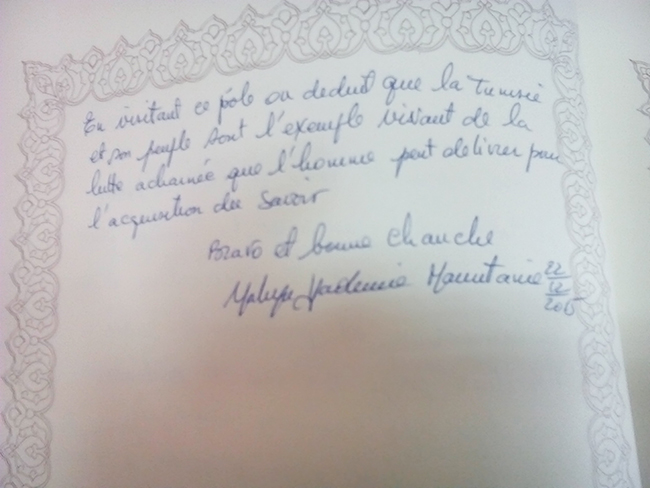 En visitant ce pole on deduit que la Tunisie
et son peuple sont l'exemple vivant de la
lutte acharnée que l'homme peut delivrer pour
l'acquisition du Savoir
Bravo et bonne chanche
Mauritanie 22
12
2015